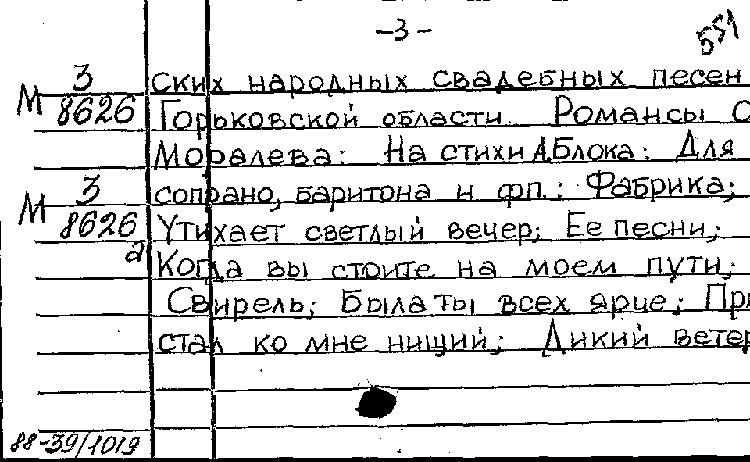 -3-
551
М 3 ских народных свадебных песен
8626 Горьковской области. Романсы С
Моралева: На стихи А.Блока: Для
М 3 сопрано, баритона и фп.: Фабрика;
8626 Утихает светлый вечер; Ее песни;
а Когда вы стоите на моем пути;
Свирель; Была ты всех ярче; При
стал ко мне нищий; Дикий ветер
88-39/1019